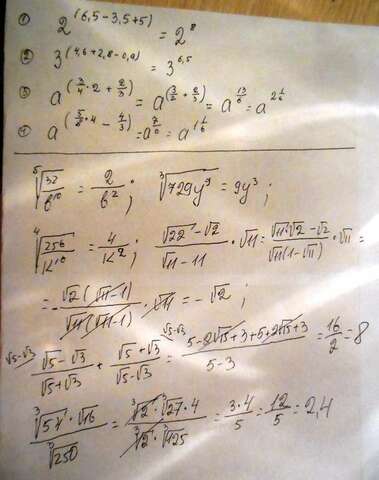 ① 2^(6,5-3,5+5) = 2^8
② 3^(4,6+2,8-0,9) = 3^6,5
③ a^(3/4·2 + 2/3) = a^(3/2 + 2/3) = a^(13/6) = a^(2 1/6)
④ a^(5/8·4 - 4/3) = a^(7/6) = a^(1 1/6)
⁵√(32/b¹⁰) = 2/b² ; ³√(729y⁹) = 9y³ ;
⁴√(256/K¹⁶) = 4/K² ; (√22 - √2)/(√11 - 11) · √11 = (√11·√2 - √2)/(√11(1-√11)) · √11 =
= - √2(√11-1)/(√11(√11-1)) · √11 = -√2 ;
√5-√3 (√5-√3)/(√5+√3) + (√5+√3)/(√5-√3) √5-√3 = (5-2√15+3+5+2√15+3)/(5-3) = 16/2 = 8
(³√54 · √16)/³√250 = (³√2 · ³√27 · 4)/(³√2 · ³√125) = 3·4/5 = 12/5 = 2,4